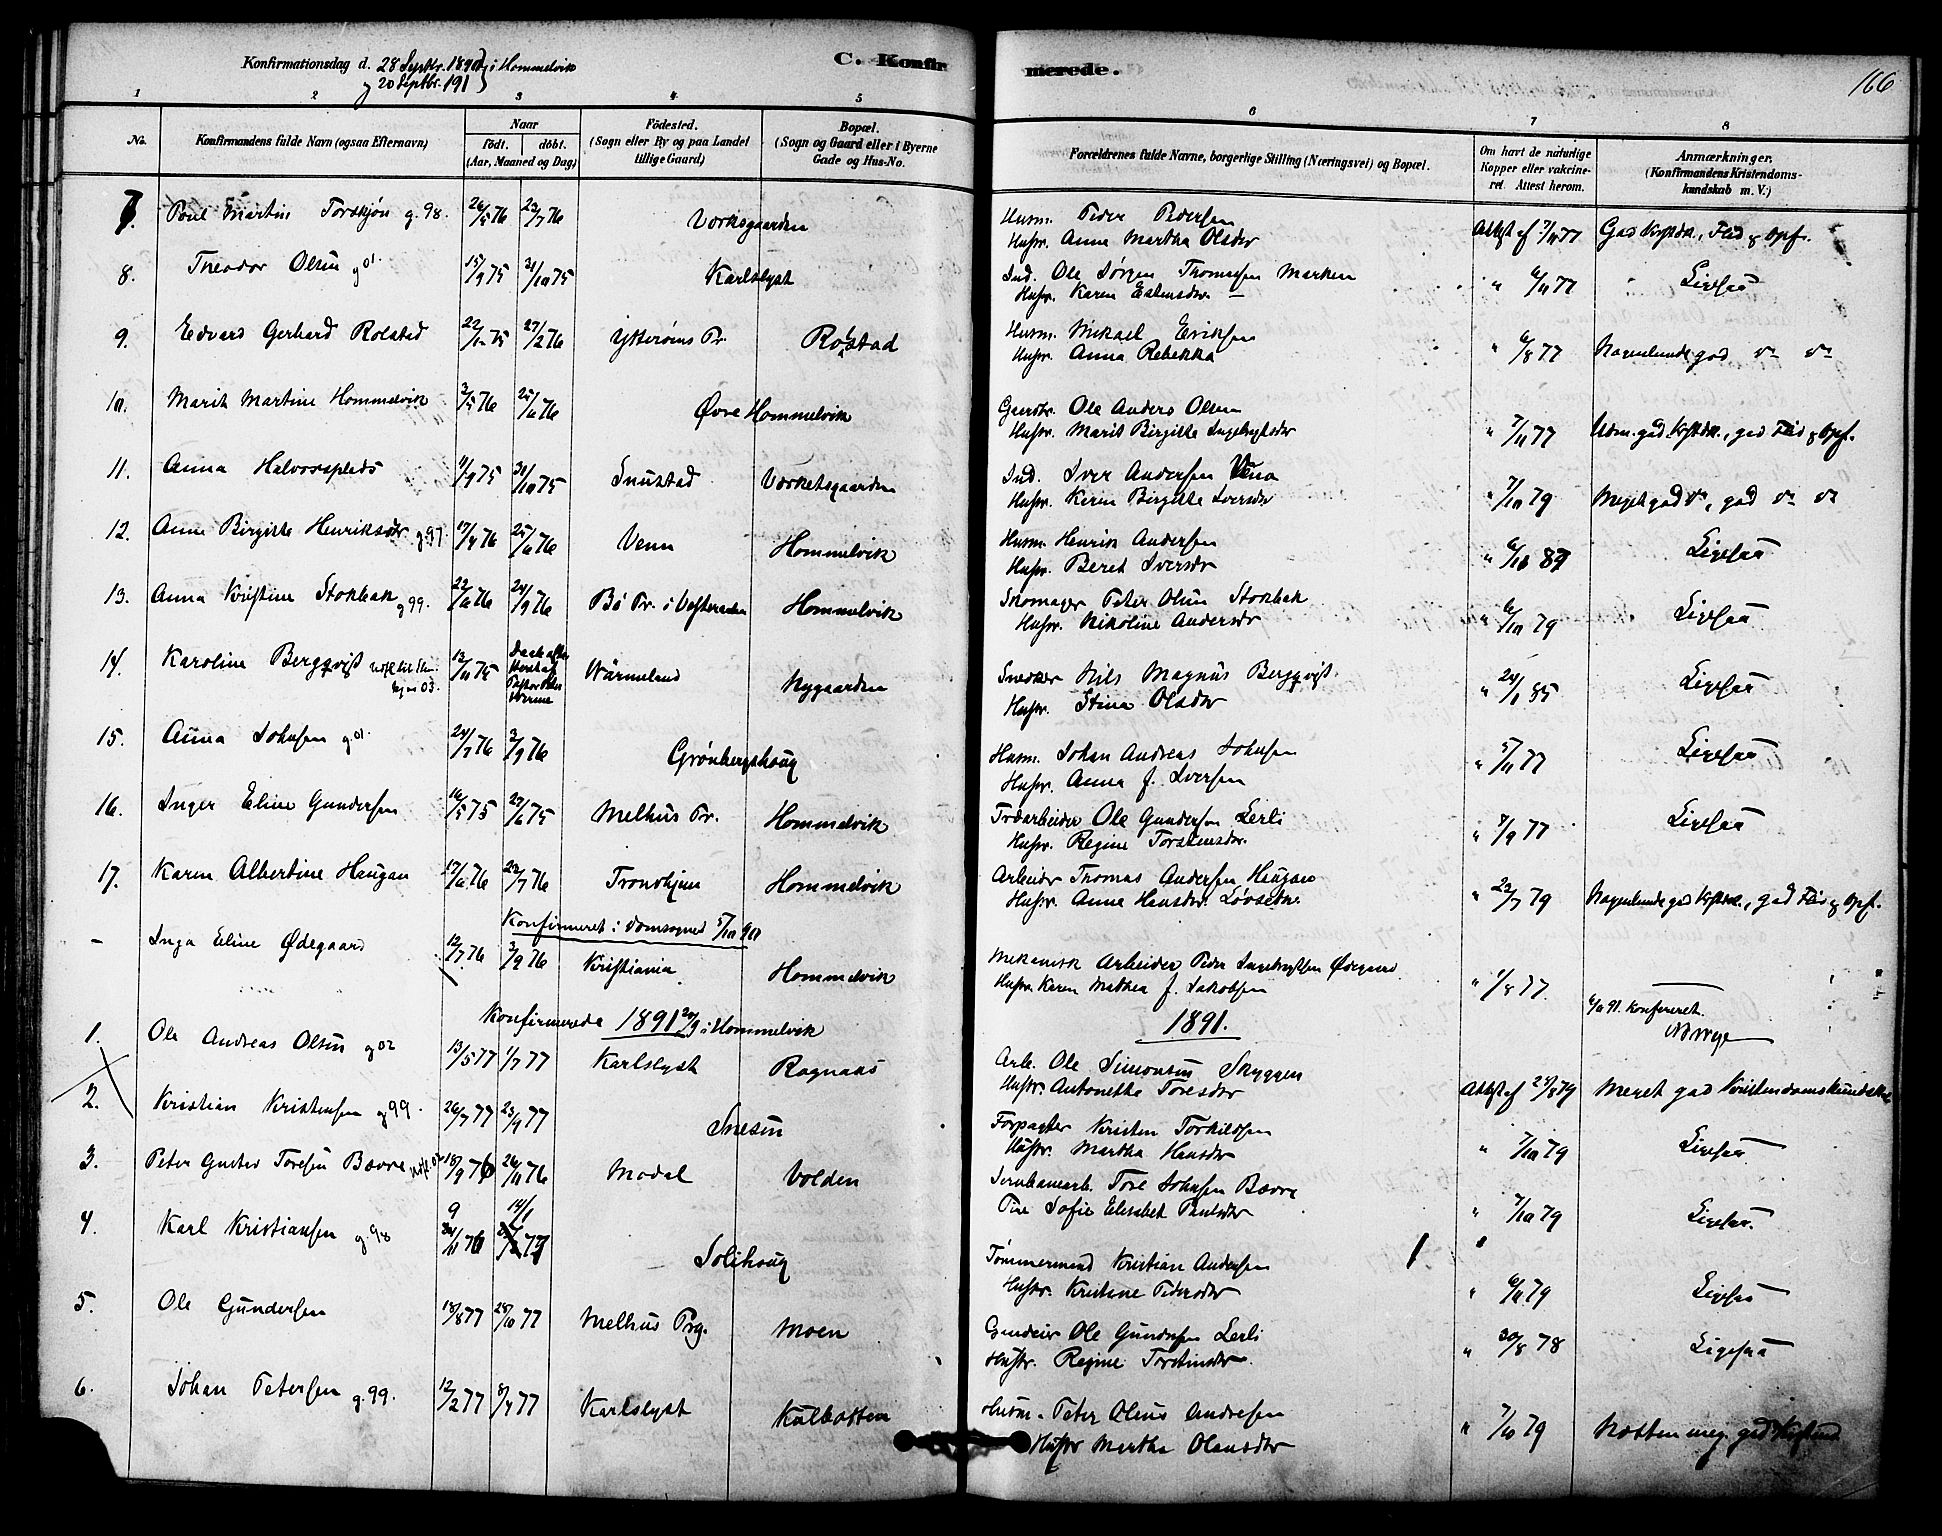 Konfirmationsdag d. 28 Septbr. 1890 i Hommelvik
og 20 Septbr. 191
C. Konfirmerede.
166
1 2 3 4 5 6 7 8
No.
Konfirmandens fulde Navn (ogsaa Efternavn)
Naar
født. døbt.
(Aar, Maaned og Dag)
Fødested.
(Sogn eller By og paa Landet
tillige Gaard)
Bopæl.
(Sogn og Gaard eller i Byerne
Gade og Hus-No.
Forældrenes fulde Navne, borgerlige Stilling (Næringsvei) og Bopæl.
Om havt de naturlige
Kopper eller vakcine-
ret. Attest herom.
Anmærkninger.
(Konfirmandens Kristendoms-
kundskab m. V.)
7. Poul Martin Torskjøn g. 98. 26/5 76 23/7 76 Værksgaarden
Husm. Peder Pedersen
Hustr. Anna Martha Olsdr
Attest af 7/11 77 God Krstdk., Flid g Opf.
8. Theodor Olsen g 01. 15/9 75 31/10 75 Karlslyst
Ind. Ole Jørgen Thomassen Marken
Hustr. Karen Estensdr.
" 6/11 77 Ligesaa
9. Edvard Gerhard Rolstad 27/2 76 Ytterøens Pr. Rolstad
Husm. Mikael Eriksen
Hustr. Anna Rebekka
" 6/8 77 Nogenlunde god do do
10. Marit Martine Hommelvik 3/5 76 25/6 76 Øvre Hommelvik
Gaardbr. Ole Anders Olsen
Hustr. Marit Birgitte Ingebrigtsdr
" 7/11 77 Udm. god. Krstdk., god Flid g Opf.
11. Anna Halvorsplads 11/9 75 31/10 75 Snustad Værketsgaarden
Ind. Iver Andersen Venn
Hustr. Karen Birgitte Iversdr
" 7/10 79 Meget god do, god do do
12. Anne Birgitte Henriksdr g 97. 17/4 76 25/6 76 Venn Hommelvik
Husm. Henrik Andersen
Hustr. Beret Iversdr
Ligesaa
13. Anna Kristine Stokbak g 99. 22/6 76 24/9 76 Bø Pr. i Vesteraalen Hommelvik
Skomager Peter Olsen Stokbak
Hustr. Nikoline Andersdr
" 6/10 79 Ligesaa
14. Karoline Bergqvist 03. Wärmeland Nygaarden
Snedker Nils Magnus Bergqvist.
Hustr. Stina Olsdr
85 Ligesaa
15. Anna Johnsen g 01. 24/7 76 3/9 76 Grønbergshaug
Husm. Johan Andreas Johnsen
Hustr. Anna f. Iversen
" 5/11 77 Ligesaa
16. Inger Eline Gundersen 16/5 75 27/6 75 Melhus Pr. Hommelvik
Træarbeider Ole Gundersen Lerli
Hustr. Regine Torstensdr.
77 Ligesaa
17. Karen Albertine Haugan 17/6 76 23/7 76 Trondhjem Hommelvik
Arbeider Thomas Andersen Haugan
Hustr. Anne Hansdr.
" 23/7 79 Nogenlunde god Krstdk., god Flid g Opf.
Konfirmeret i Domsognet 5/10 90
– Inga Eline Ødegaard 12/7 76 3/9 76 Kristiania Hommelvik
Mekanisk Arbeider Peder Ingebrigtsen Ødegaard
Hustr. Karen Mathea f. Jakobsen
" 1/8 77. Konfirmeret
Konfirmerede 1891 20/9 i Hommelvik
1891.
1. Ole Andreas Olsen g 02 13/5 77 1/7 77 Karlslyst Ragnaas
Arb. Ole Simonsen Skyggen
Hustr. Antonetta Toresdr
Attest af 79 Meget god Kristendomskundskab
2. Kristian Kristensen g 99. 26/7 77 23/9 77 Snesen
Forpagter Kristen Torkildsen
Hustr. Martha Hansdr
" 7/10 79 Ligesaa
3. Peter Gustav Toresen Bævre 18/9 76 26/11 76 Modal Volden
Jernbanearb. Tore Johnsen Bævre
Sofie Elisabet Paulsdr
" 7/10 79 Ligesaa.
4. Karl Kristiansen g. 98 76 14/1 77 Solihaug
Tømmermand Kristian Andersen
Hustr. Kristine Pedersdr
" 6/11 79 Ligesaa
5. Ole Gundersen 18/8 77 28/10 77 Melhus Prg. Moen
Ole Gundersen Lerli
Hustr. Regine Torstensdr.
" 30/8 78 Ligesaa
6. Johan Petersen g. 99. 12/2 77 8/4 77 Karlslyst Kulbotten
Husm. Peter Olaus Andresen
Hustr Martha Olausdr
" 7/10 79 Næsten meg. god